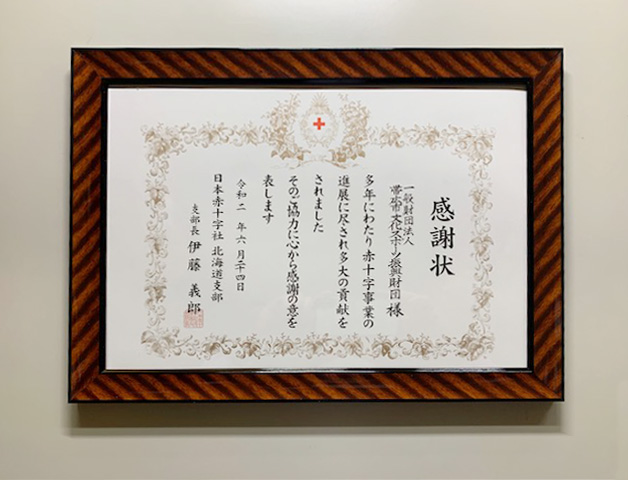 感謝状
一般財団法人
帯広市文化スポーツ振興財団 様
多年にわたり赤十字事業の
進展に尽され多大の貢献を
されました
そのご協力に心から感謝の意を
表します
令和二年六月二十四日
日本赤十字社 北海道支部
支部長 伊藤 義郎